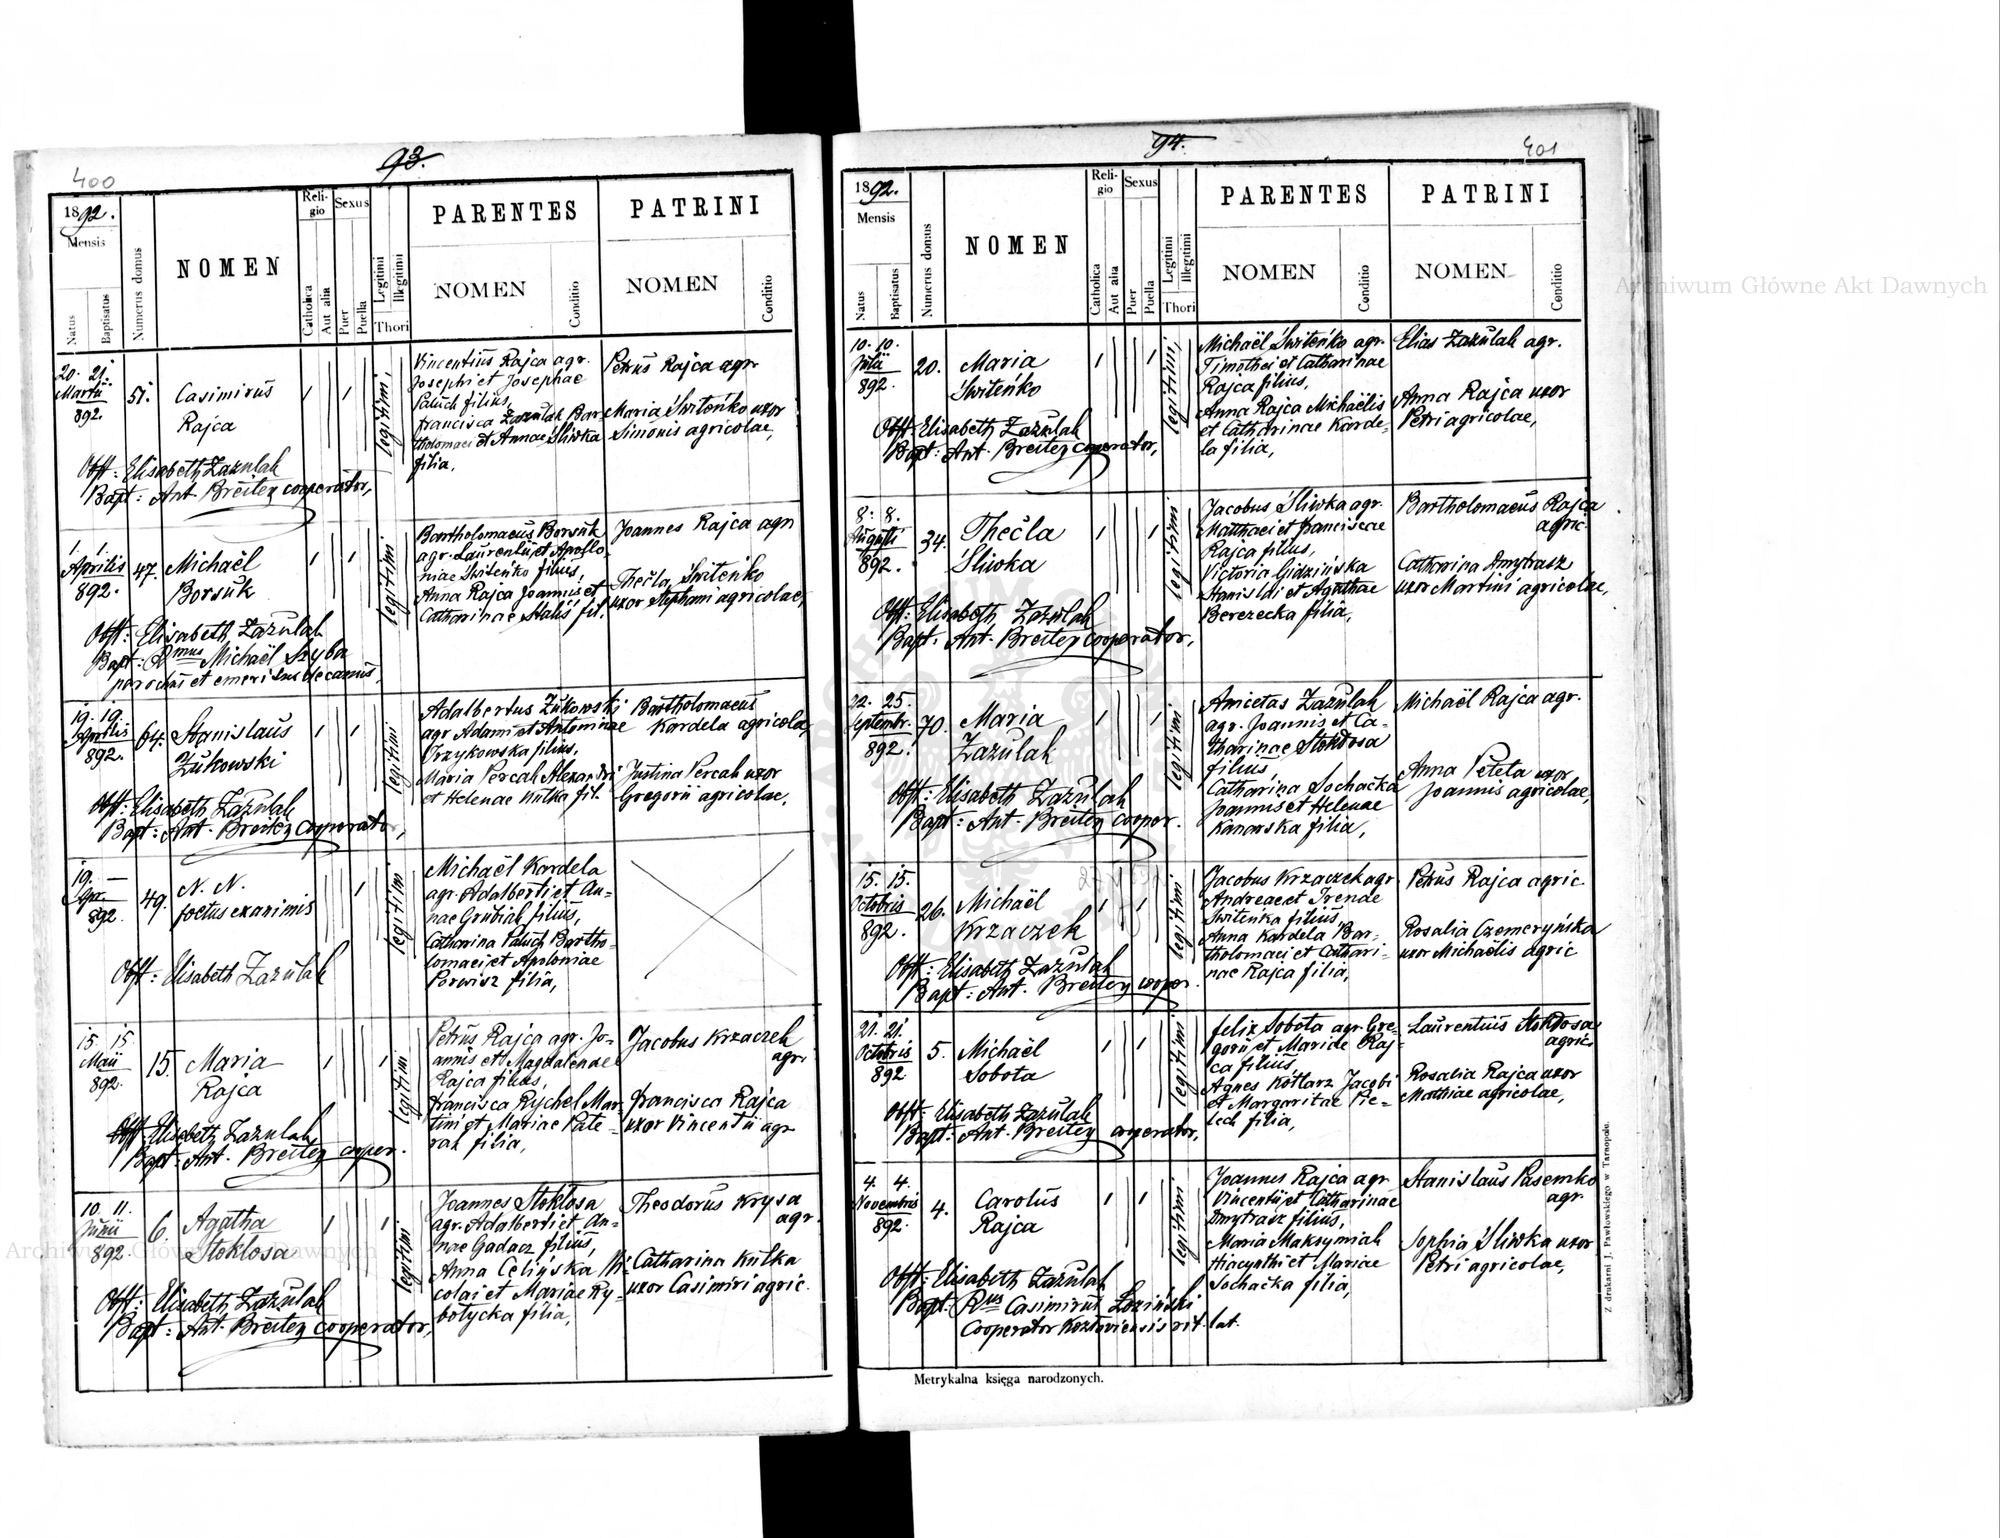 400
93.
1892.
Mensis
Natus
Baptisatus
Numerus domus
NOMEN
Religio
Catholica
Aut alia
Sexus
Puer
Puella
Legitimi
Illegitimi
Thori
PARENTES
NOMEN
Conditio
PATRINI
NOMEN
Conditio
20. 21.
Martii
892.
51.
Casimirus
Rajca
legitimi,
Vincentius Rajca agr.
Josephi et Josephae
Paluch filius,
Francisca Zazulak Bar-
tholomaei et Annae Śliwka
filia,
Petrus Rajca agr
Maria Świteńko uxor
Simonis agricolae,
Obst: Elisabeth Zazulak
Bapt: Ant. Breiten cooperator,
1. 1.
Aprilis
892.
47.
Michaël
Borsuk
legitimi
Bartholomaeus Borsuk
agr. Laurentii et Apollo-
niae Świteńko filius,
Anna Rajca Joannis et
Catharinae Staliś fil.
Joannes Rajca agr
Thecla Świteńko
uxor Stephani agricolae,
Obst: Elisabeth Zazulak
Bapt: Rmus Michaël Szyba
parochus et emeritus decanus,
19. 19.
Aprilis
892.
64.
Stanislaus
Żukowski
legitimi
Adalbertus Żukowski
agr Adami et Antoninae
Trzykowska filius,
Maria Percak Alexandri
et Helenae Kulka fil.
Bartholomaeus
Kardela agricola,
Justina Percak uxor
Gregorii agricolae.
Obst: Elisabeth Zazulak
Bapt: Ant. Breiten cooperator,
19. —
Apr.
892.
49.
N. N.
foetus exanimis
legitimi
Michaël Kardela
agr. Adalberti et An-
nae Grubiak filius,
Catharina Paluch Bartho-
lomaei et Apoloniae
Porwisz filia,
Obst: Elisabeth Zazulak
15. 15.
Maii
892.
15.
Maria
Rajca
legitimi
Petrus Rajca agr. Jo-
annis et Magdalenae
Rajca filius,
Francisca Rychel Mar-
tini et Mariae Pate-
rak filia,
Jacobus Krzaczek
agr.
Francisca Rajca
uxor Vincentii agr
Obst: Elisabeth Zazulak
Bapt: Ant. Breiten cooper.
10. 11.
Junii
892.
6.
Agatha
Stoklosa
legitimi
Joannes Stoklosa
agr. Adalberti et An-
nae Gadacz filius,
Anna Celińska Ni-
colai et Mariae Ry-
botycka filia,
Theodorus Krysa
agr.
Catharina Kulka
uxor Casimiri agric.
Obst: Elisabeth Zazulak
Bapt: Ant. Breiten cooperator,
94.
401
1892.
Mensis
Natus
Baptisatus
Numerus domus
NOMEN
Religio
Catholica
Aut alia
Sexus
Puer
Puella
Legitimi
Illegitimi
Thori
PARENTES
NOMEN
Conditio
PATRINI
NOMEN
Conditio
10. 10.
Julii
892.
20.
Maria
Świteńko
legitimi,
Michaël Świteńko agr.
Timothei et Catharinae
Rajca filius,
Anna Rajca Michaëlis
et Catharinae Karde-
la filia,
Elias Zazulak agr.
Anna Rajca uxor
Petri agricolae,
Obst: Elisabeth Zazulak
Bapt: Ant. Breiten cooperator,
8. 8.
Augusti
892.
34.
Thecla
Śliwka
legitimi
Jacobus Śliwka agr.
Matthaei et Franciscae
Rajca filius,
Victoria Gidzińska
Stanislai et Agathae
Berezecka filia,
Bartholomaeus Rajca
agric.
Catharina Dmytrasz
uxor Martini agricolae,
Obst: Elisabeth Zazulak
Bapt. Ant. Breiten cooperator,
22. 25.
Septembr.
892.
70.
Maria
Zazulak
legitimi
Anicetas Zazulak
agr. Joannis et Ca-
tharinae Stoklosa
filius,
Catharina Sochacka
Joannis et Helenae
Kanarska filia,
Michaël Rajca agr.
Anna Peteta uxor
Joannis agricolae,
Obst: Elisabeth Zazulak
Bapt: Ant. Breiten cooper.
15. 15.
Octobris
892.
26.
Michaël
Krzaczek
legitimi
Jacobus Krzaczek agr
Andreae et Irenae
Świteńka filius,
Anna Kardela Bar-
tholomaei et Cathari-
nae Rajca filia,
Petrus Rajca agric
Rosalia Czemeryńska
uxor Michaëlis agric
Obst: Elisabeth Zazulak
Bapt: Ant. Breiten cooper.
21. 21.
Octobris
892
5.
Michaël
Sobota
legitimi
Felix Sobota agr. Gre-
gorii et Mariae Raj-
ca filius
Agnes Kotlarz Jacobi
et Margaritae Pie-
lech filia,
Laurentius Stoklosa
agric.
Rosalia Rajca uxor
Matthiae agricolae,
Obst: Elisabeth Zazulak
Bapt: Ant. Breiten cooperator,
4. 4.
Novembris
892.
4.
Carolus
Rajca
legitimi
Joannes Rajca agr
Vincentii et Catharinae
Dmytrasz filius,
Maria Maksymiak
Hiacynthi et Mariae
Sochacka filia,
Stanislaus Pasemko
agr.
Sophia Śliwka uxor
Petri agricolae,
Obst: Elisabeth Zazulak
Bapt: Rus Casimirus Łoziński
Cooperator Kozłoviensis rit. lat.
Metrykalna księga narodzonych.
Z drukarni J. Pawłowskiego w Tarnopolu.
Archiwum Główne Akt Dawnych
Archiwum Główne Akt Dawnych